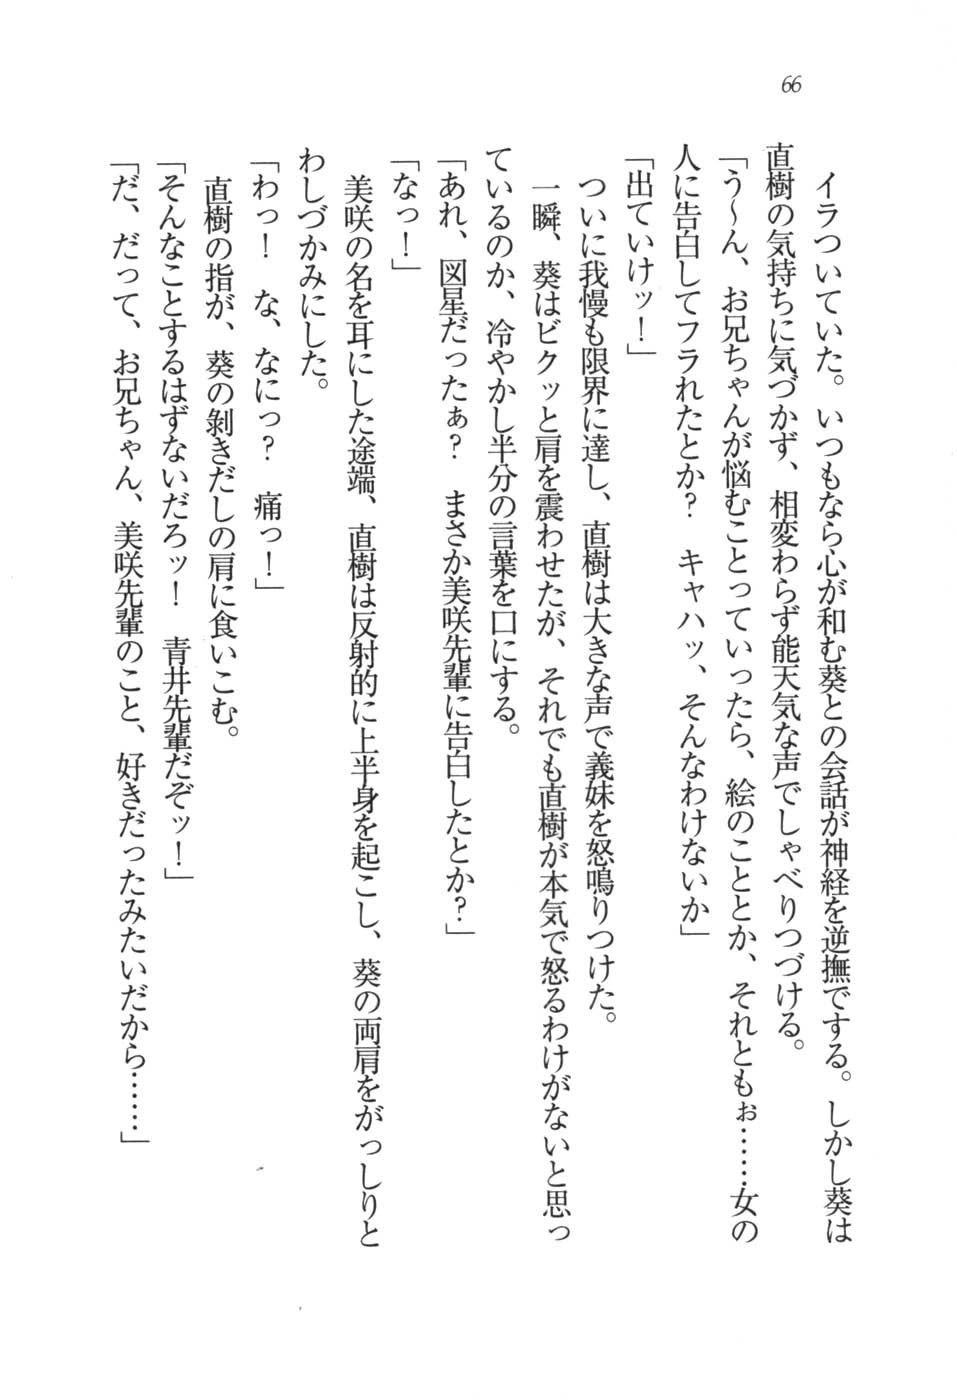 66
イラついていた。いつもなら心が和む葵との会話が神経を逆撫でする。しかし葵は
直樹の気持ちに気づかず、相変わらず能天気な声でしゃべりつづける。
「う～ん、お兄ちゃんが悩むことっていったら、絵のこととか、それともぉ……女の
人に告白してフラれたとか？　キャハッ、そんなわけないか」
「出ていけッ！」
ついに我慢も限界に達し、直樹は大きな声で義妹を怒鳴りつけた。
一瞬、葵はビクッと肩を震わせたが、それでも直樹が本気で怒るわけがないと思っ
ているのか、冷やかし半分の言葉を口にする。
「あれ、図星だったぁ？　まさか美咲先輩に告白したとか？」
「なっ！」
美咲の名を耳にした途端、直樹は反射的に上半身を起こし、葵の両肩をがっしりと
わしづかみにした。
「わっ！　な、なにっ？　痛っ！」
直樹の指が、葵の剝きだしの肩に食いこむ。
「そんなことするはずないだろッ！　青井先輩だぞッ！」
「だ、だって、お兄ちゃん、美咲先輩のこと、好きだったみたいだから……」